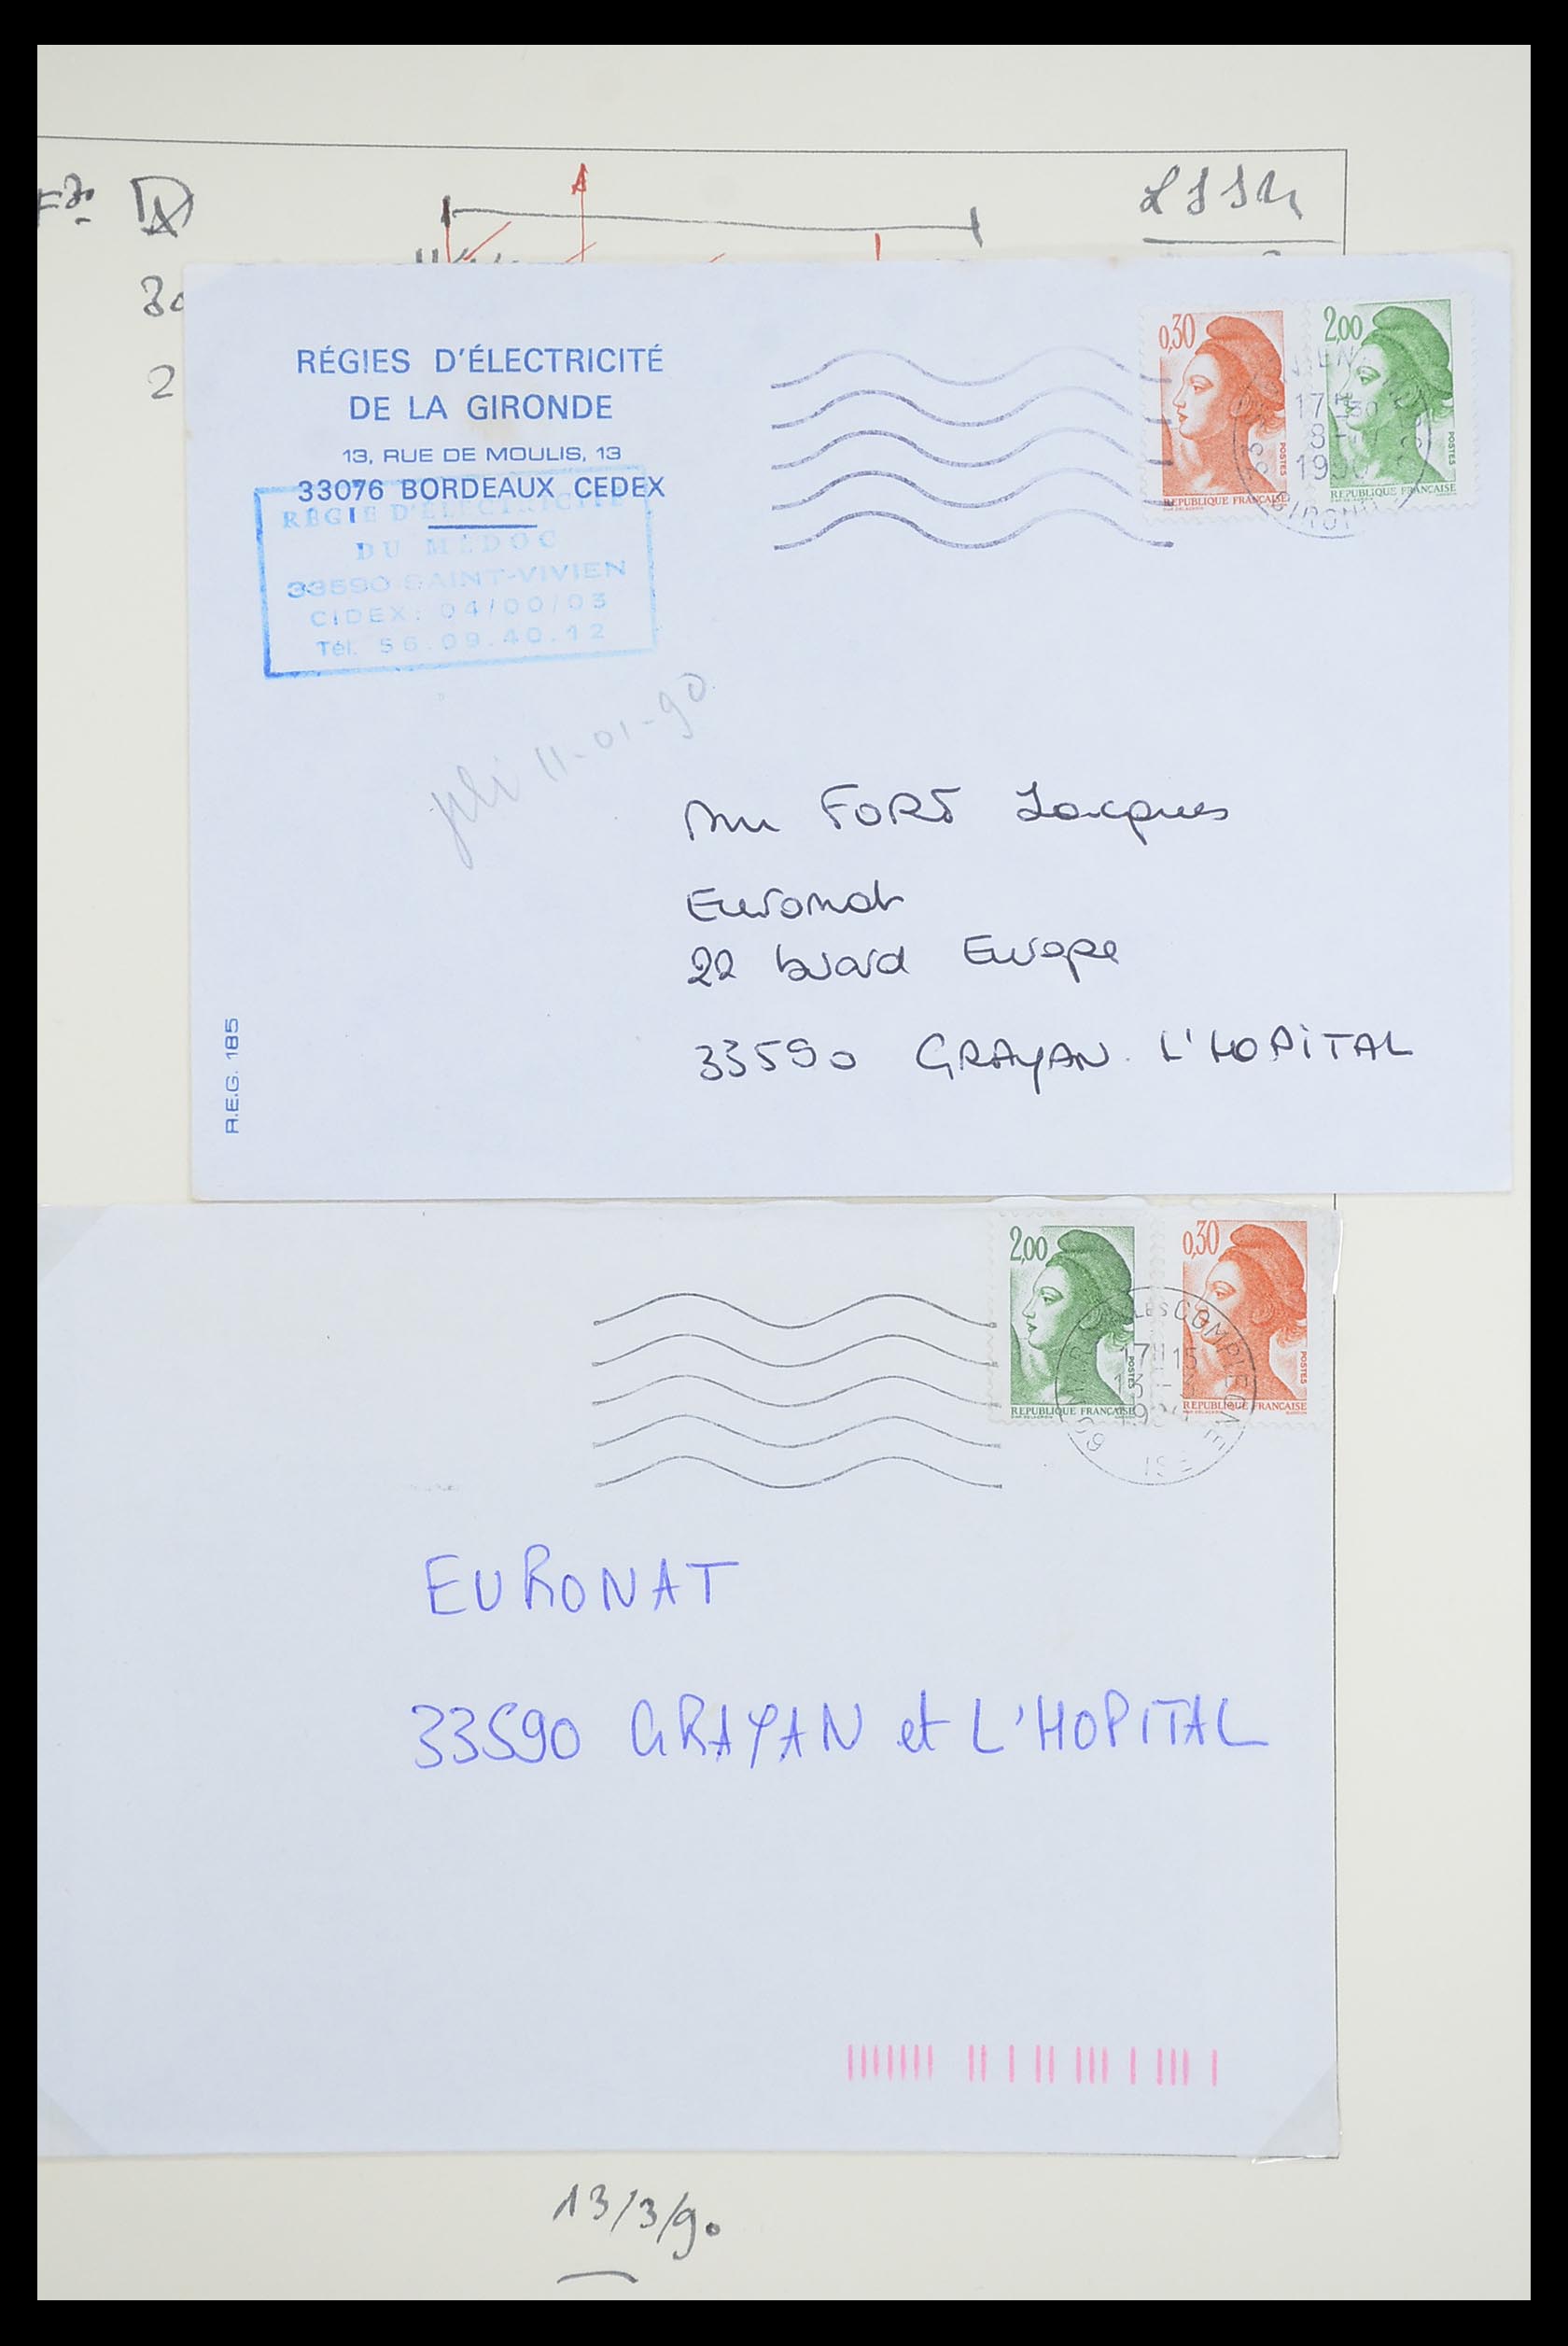 30
2
0,30
2,00
POSTES
REPUBLIQUE FRANÇAISE
POSTES
REPUBLIQUE FRANÇAISE
1990
RÉGIES D'ÉLECTRICITÉ
DE LA GIRONDE
13, RUE DE MOULIS, 13
33076 BORDEAUX CEDEX
REGIE D'ELECTRICITE
DU MEDOC
33590 SAINT-VIVIEN
CIDEX: 04/00/03
Tél. 56.09.40.12
11-01-90
FORT Jacques
Euronat
22 bvard Europe
33590 GRAYAN L'HOPITAL
R.E.G. 185
2,00
0,30
POSTES
REPUBLIQUE FRANÇAISE
POSTES
REPUBLIQUE FRANÇAISE
17H15
13-3
1990
EURONAT
33590 GRAYAN et L'HOPITAL
13/3/90